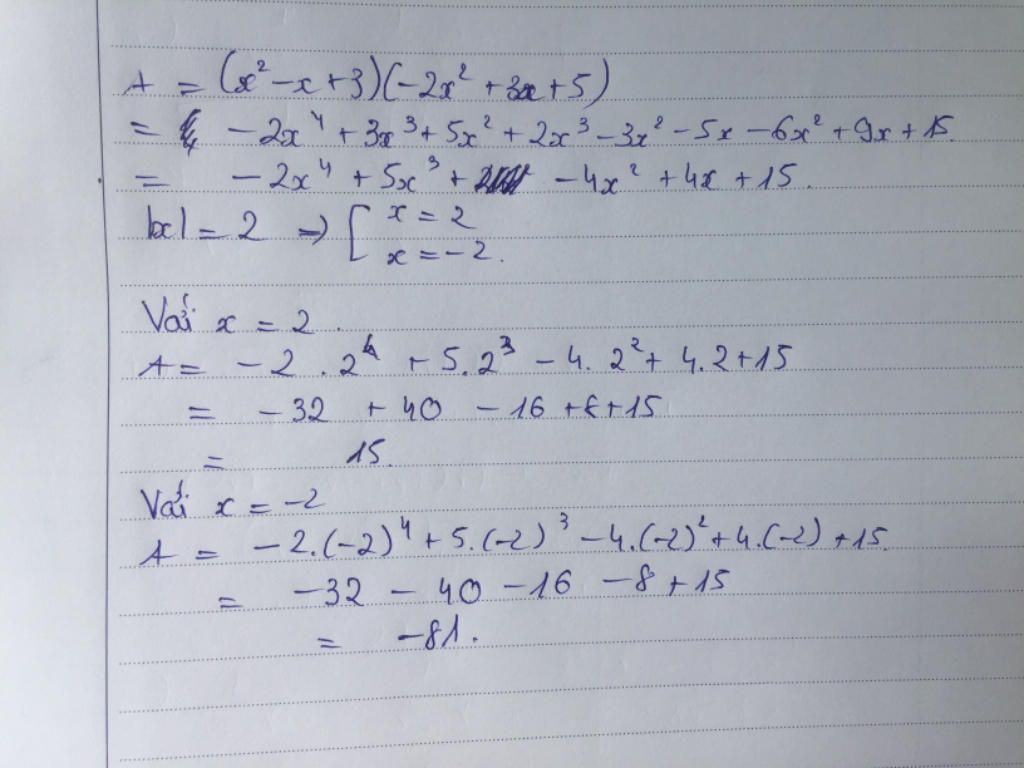 A = (x² - x + 3)(-2x² + 3x + 5)
= -2x⁴ + 3x³ + 5x² + 2x³ - 3x² - 5x - 6x² + 9x + 15.
= -2x⁴ + 5x³ + -4x² + 4x + 15.
|x| = 2 => [ x = 2
x = -2.
Với x = 2.
A = -2 . 2⁴ + 5. 2³ - 4. 2² + 4. 2 + 15
= -32 + 40 - 16 + 8 + 15
= 15.
Với x = -2
A = -2.(-2)⁴ + 5.(-2)³ - 4.(-2)² + 4.(-2) + 15.
= -32 - 40 - 16 - 8 + 15
= -81.